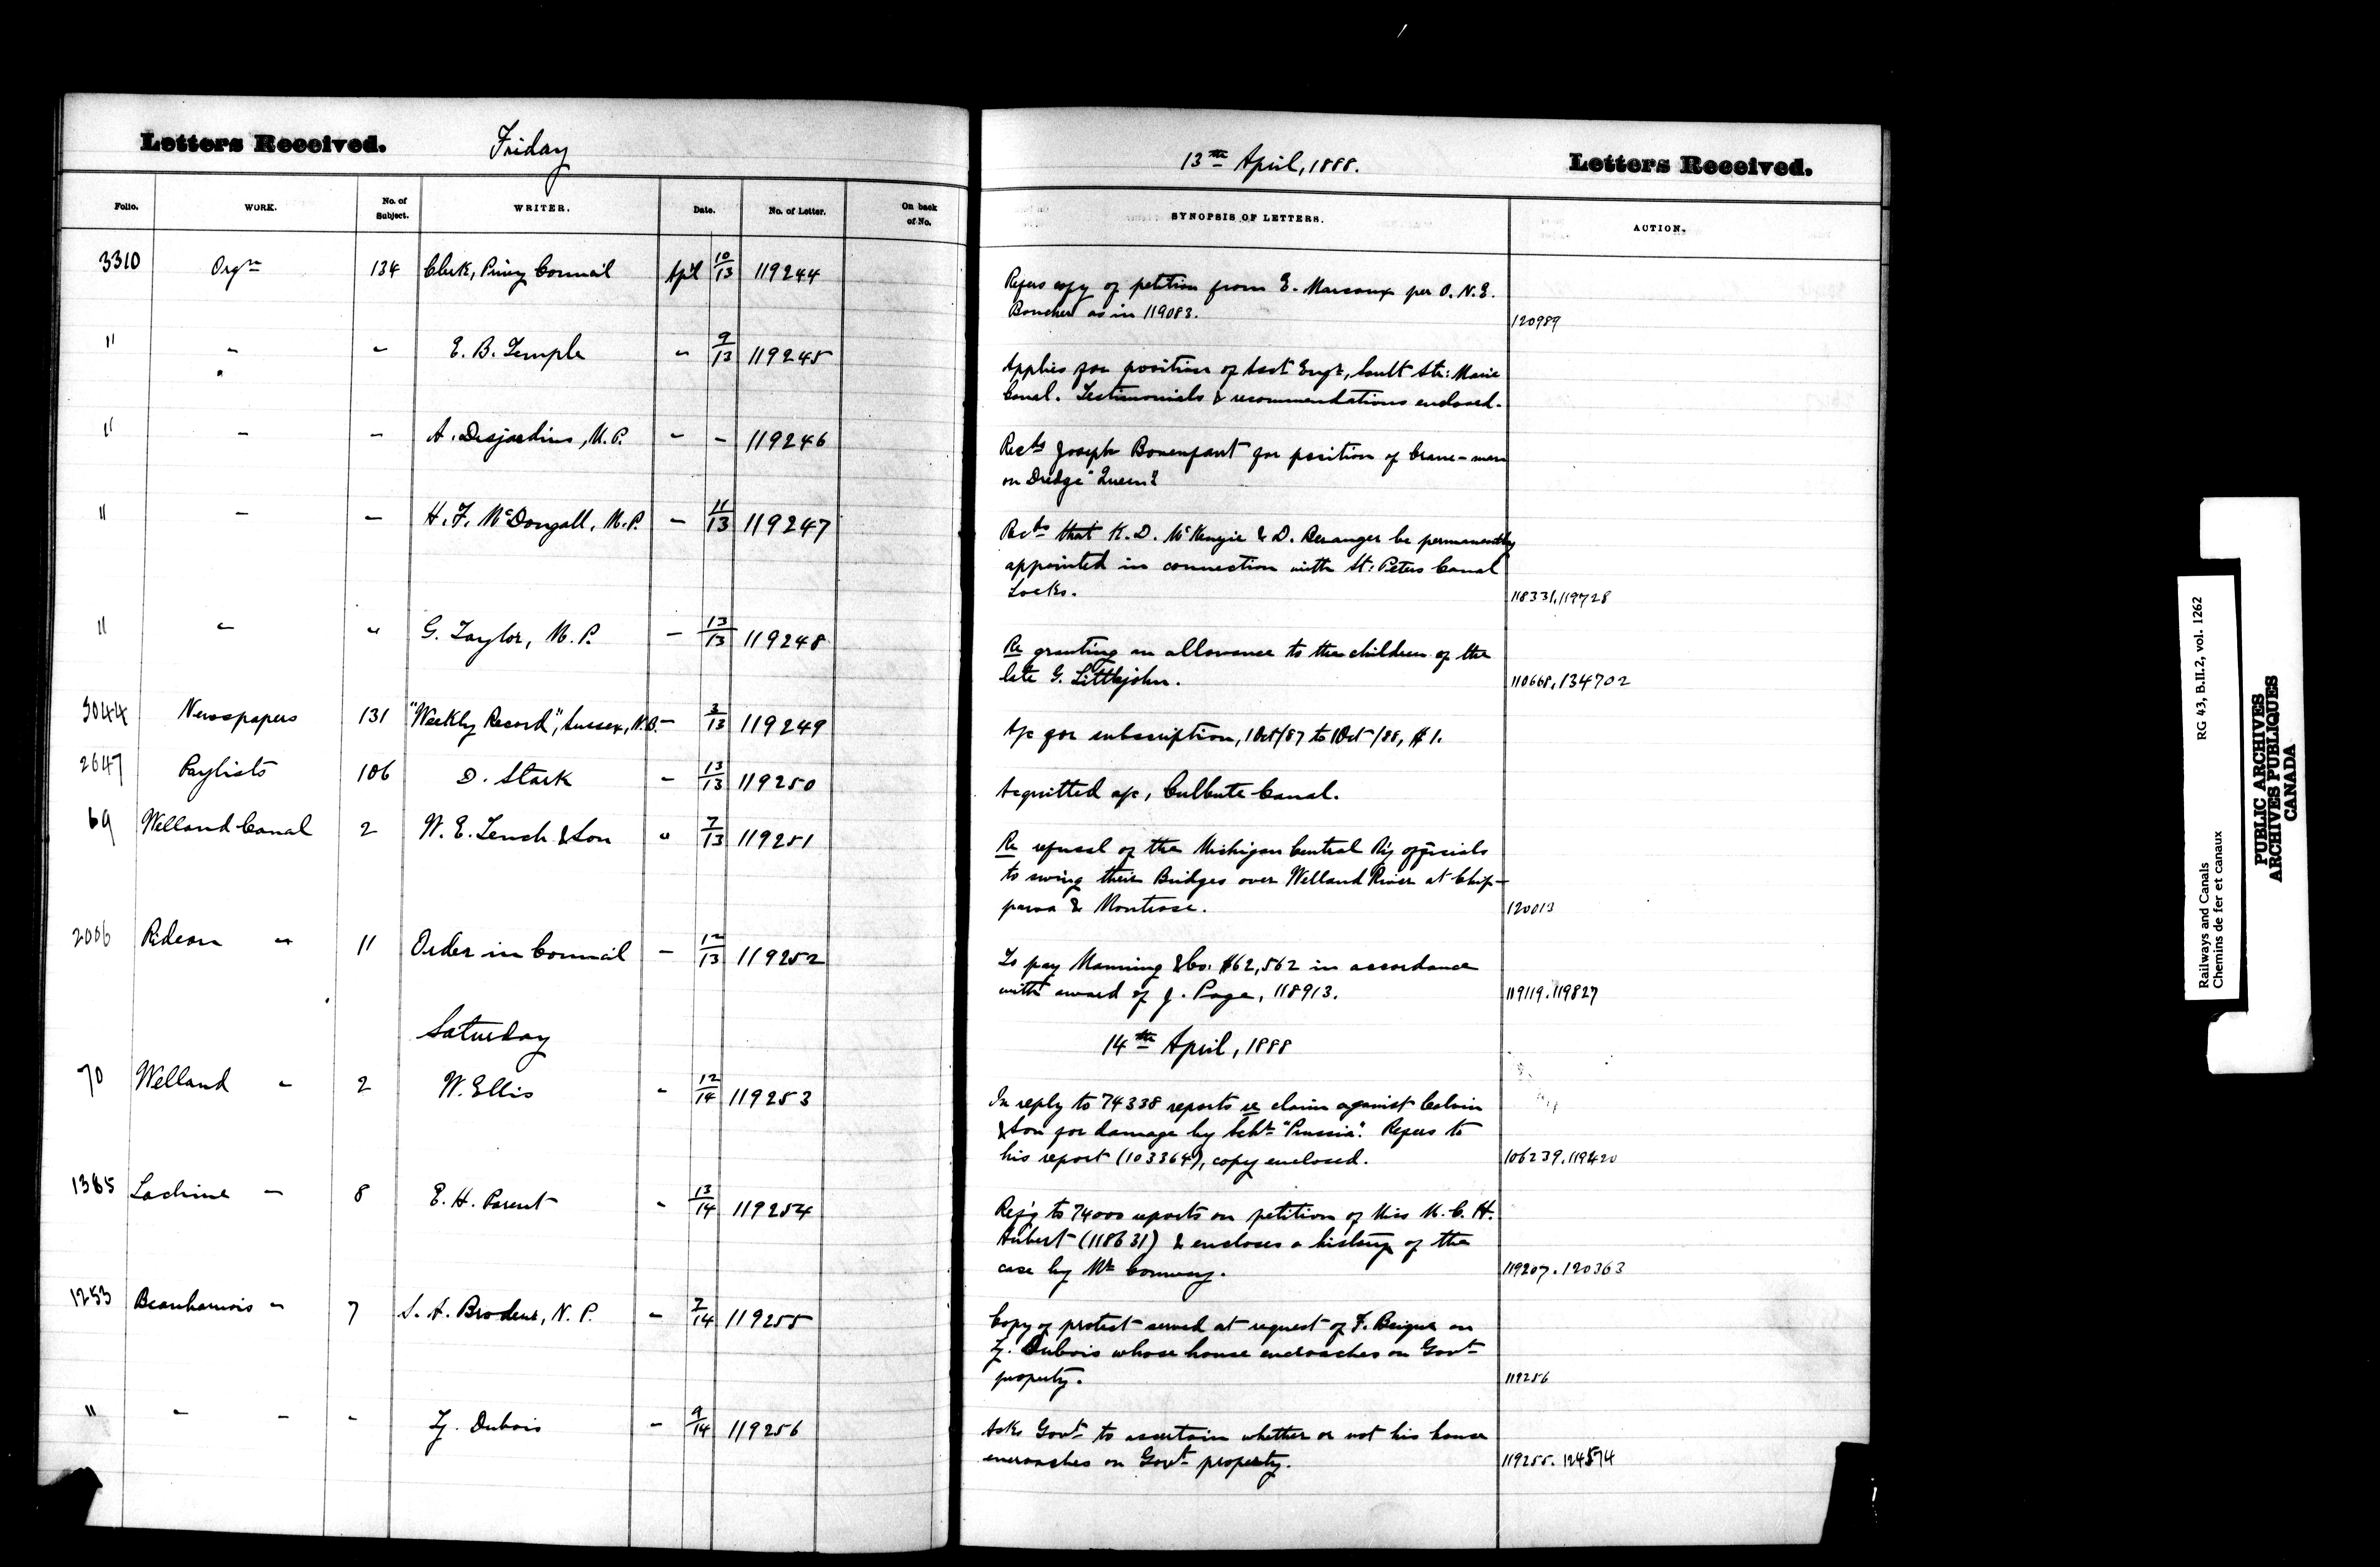 Letters Received.
Friday
Folio. WORK. No. of Subject. WRITER. Date. No. of Letter. On back of No.
3310 Orgn 134 Clerk, Privy Council Apl 10/13 119244
" " " E. B. Temple " 9/13 119245
" " " A. Desjardins, M.P. " " 119246
" " " H. F. McDougall, M.P. " 11/13 119247
" " " G. Taylor, M.P. " 13/13 119248
3044 Newspapers 131 "Weekly Record", Sussex, N.B. " 3/13 119249
2647 Paylists 106 D. Stark " 13/13 119250
69 Welland Canal 2 W. E. Tench & Son " 7/13 119251
2006 Rideau " 11 Order in Council " 12/13 119252
Saturday
70 Welland " 2 W. Ellis " 12/14 119253
1385 Lachine " 8 E. H. Parent " 13/14 119254
1253 Beauharnois " 7 S. A. Brodeur, N.P. " 7/14 119255
" " " " Z. Dubois " 9/14 119256
13th April, 1888.
Letters Received.
SYNOPSIS OF LETTERS. ACTION.
Refers copy of petition from E. Marsoux per O. N. E.
Boucher as in 119083. 120989
Applies for position of Asst Engr, Sault Ste: Marie
Canal. Testimonials & recommendations enclosed.
Recds Joseph Bonenfant for position of Crane-man
on Dredge "Queen".
Recds that K. D. McKenzie & D. Beranger be permanently
appointed in connection with St: Peters Canal
Locks. 118331. 119728
Re granting an allowance to the children of the
late G. Littlejohn. 110668. 134702
A/c for subscription, 1 Oct/87 to 1 Oct/88, $1.
Acquitted a/c, Culbute Canal.
Re refusal of the Michigan Central Ry officials
to swing their Bridges over Welland River at Chip-
pawa & Montrose. 120013
To pay Manning & Co. $62,562 in accordance
with award of J. Page, 118913. 119119. 119827
14th April, 1888
In reply to 74338 reports re claim against Calvin
& Son for damage by Schr "Prussia". Refers to
his report (103364), copy enclosed. 106239. 119420
Refg to 74000 reports on petition of Miss M. C. H.
Aubert (118631) & encloses a history of the
case by Mr Conway. 119207. 120363
Copy of protest served at request of F. Beique on
Z. Dubois whose house encroaches on Govt
property. 119256
Asks Govt to ascertain whether or not his house
encroaches on Govt property. 119255. 124574
Railways and Canals RG 43, B.II.2, vol. 1262
Chemins de fer et canaux
PUBLIC ARCHIVES
ARCHIVES PUBLIQUES
CANADA